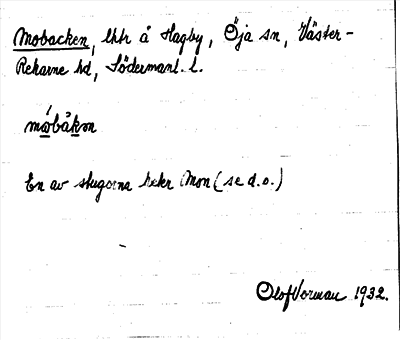 Mobacken, lhtr å Hagby, Öja sn, Väster-
Rekarne hd, Södermanl. l.
mo̠båkɔn
En av stugorna heter Mon (se d.o.)
Olof Vorman 1932.